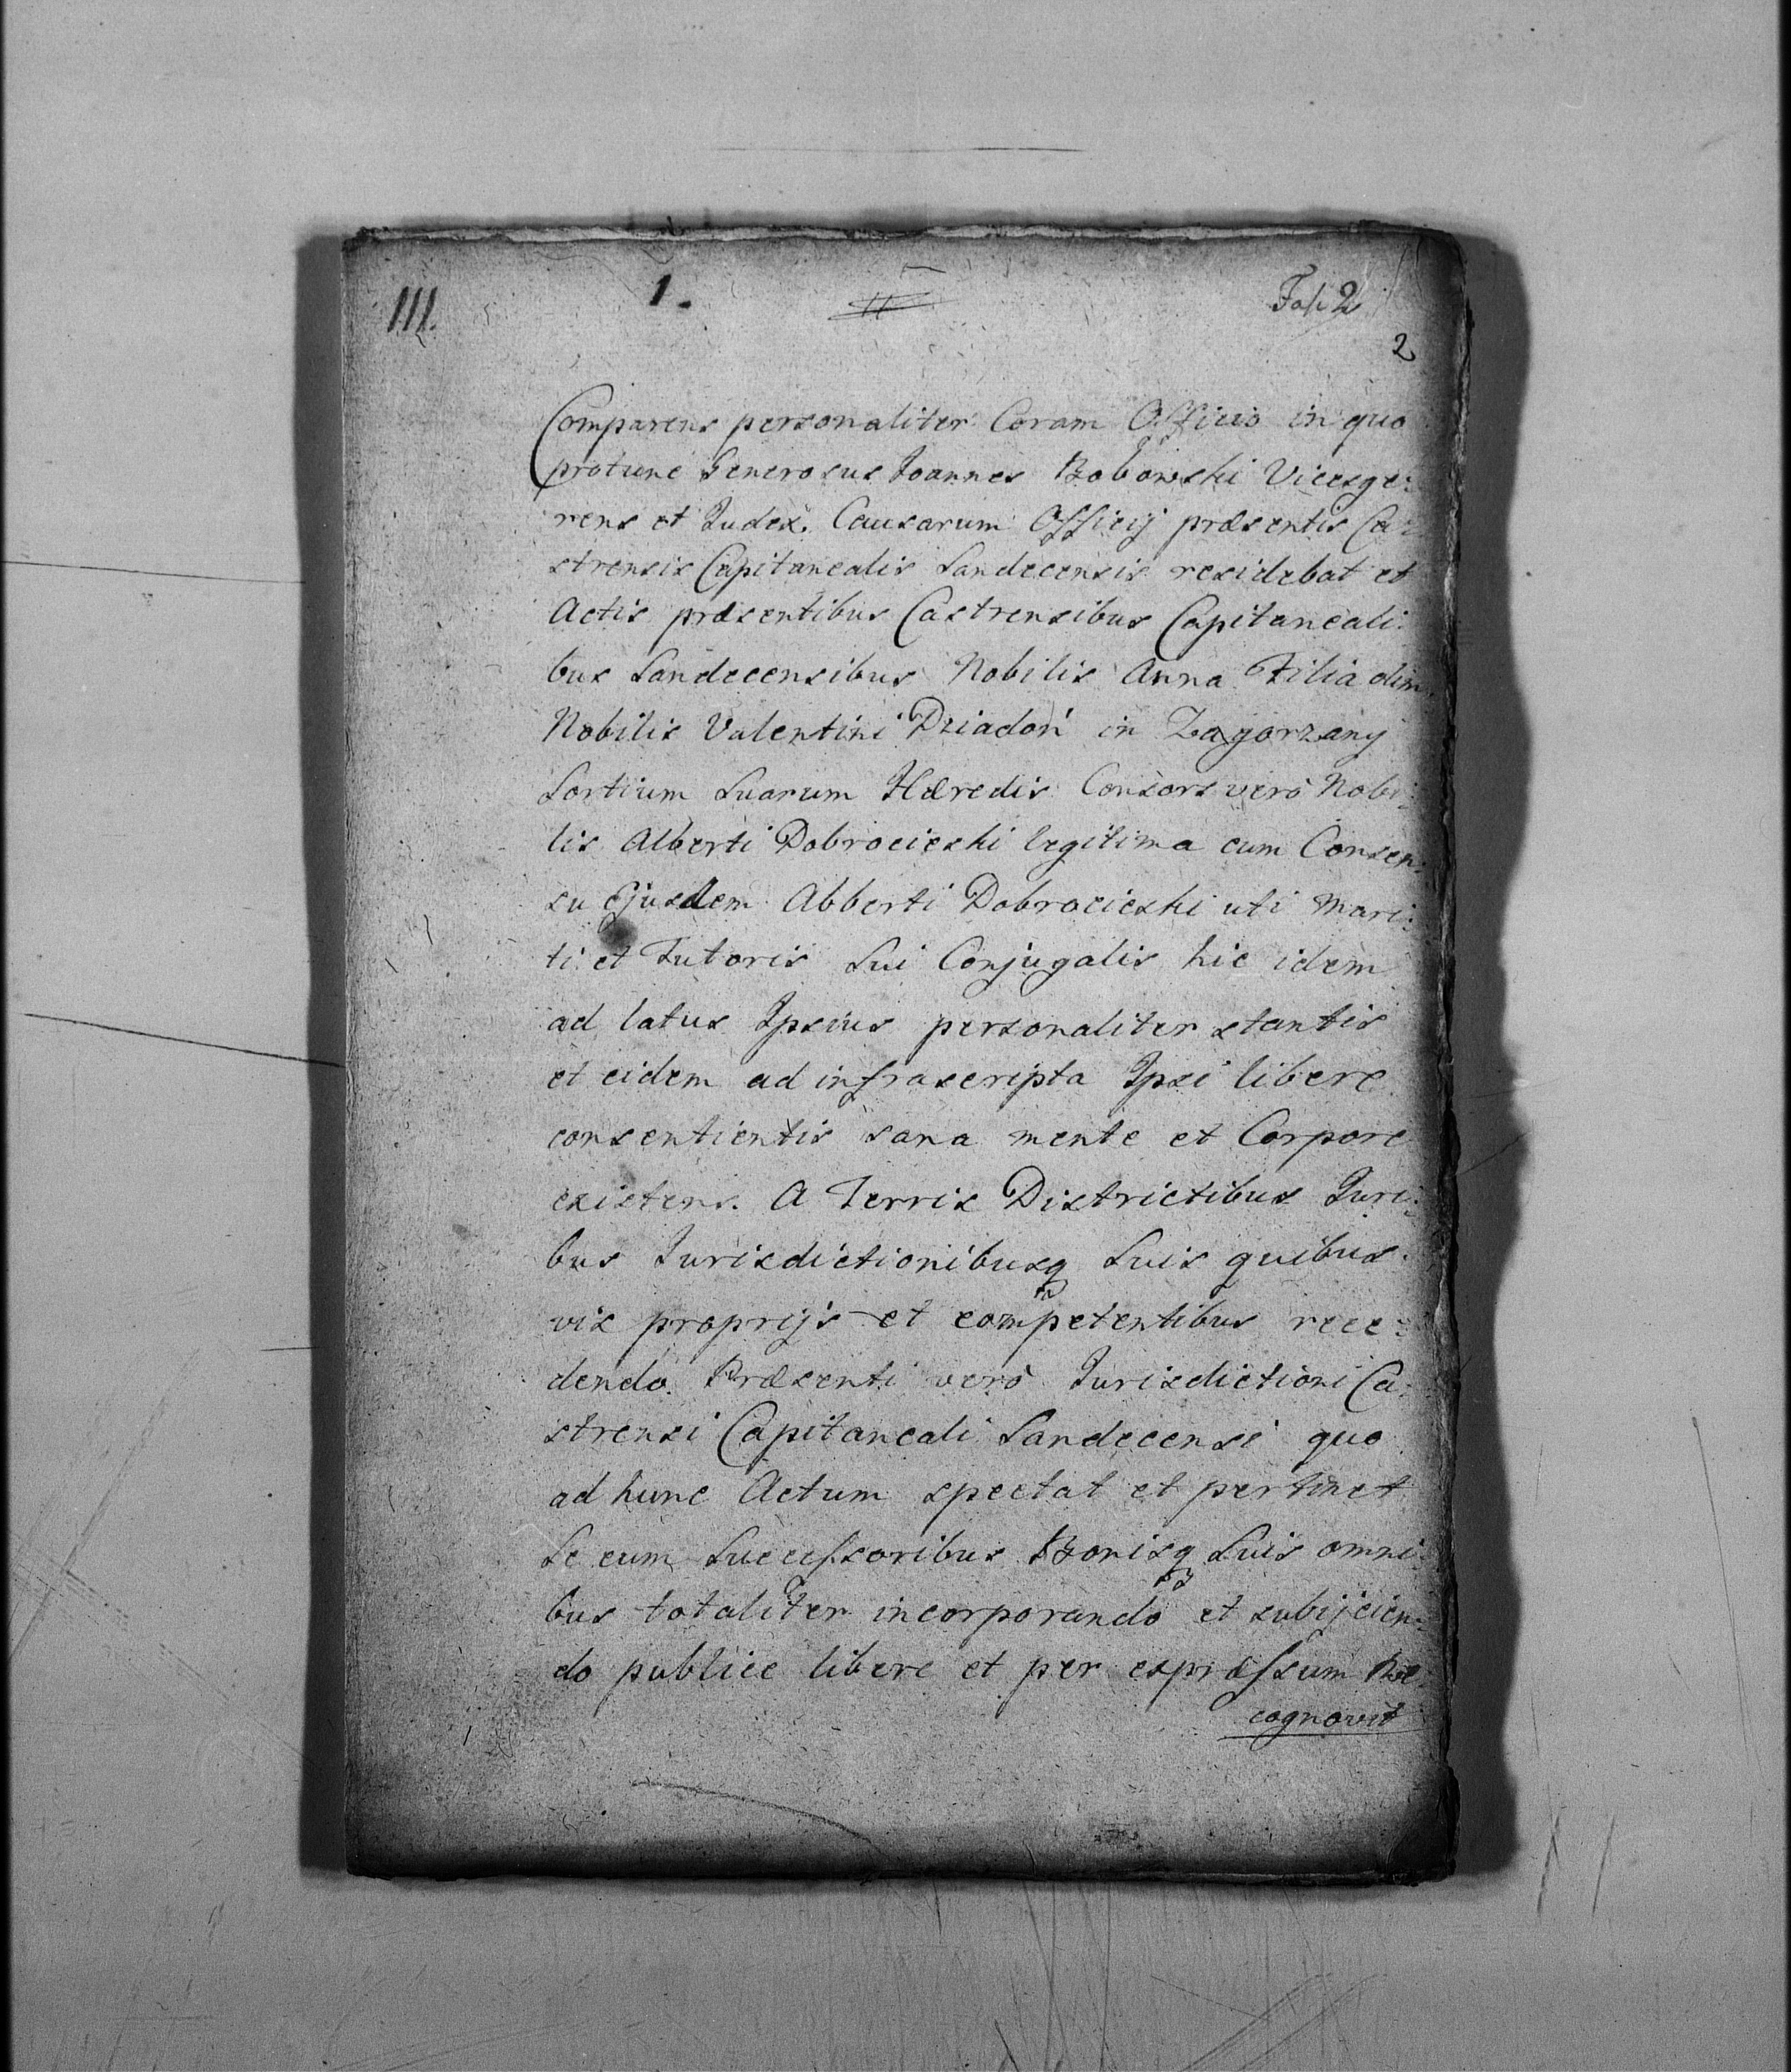 III. 1. Fol: 2
2
Comparens personaliter Coram Officio in quo
protunc Generosus Joannes Bobowski Vicesge:
rens et Judex. Causarum Officij præsentis Ca:
strensis Capitanealis Sandecensis residebat et
Actis præsentibus Castrensibus Capitaneali:
bus Sandecensibus Nobilis Anna Filia olim
Nobilis Valentini Dziadoń in Zagorzany
Sortium Suarum Hæredis Consors verò Nobi:
lis Alberti Dobrocieski legitima cum Consen:
su Ejusdem Abberti Dobrocieski uti Mari:
ti et Tutoris Sui Conjugalis hic idem
ad latus Ipsius personaliter stantis
et eidem ad infrascripta Ipsi libere
consentientis sana mente et Corpore
existens. A Terris Districtibus Juri:
bus Jurisdictionibusq Suis quibus.
vis proprijs et competentibus rece:
dendo. Præsenti verò Jurisdictioni Ca:
strensi Capitaneali Sandecensi quo
ad hunc Actum spectat et pertinet
Se cum Successoribus Bonisq Suis omni
bus totaliter incorporando et subijcien:
do publice libere et per expræssum Re
cognovit